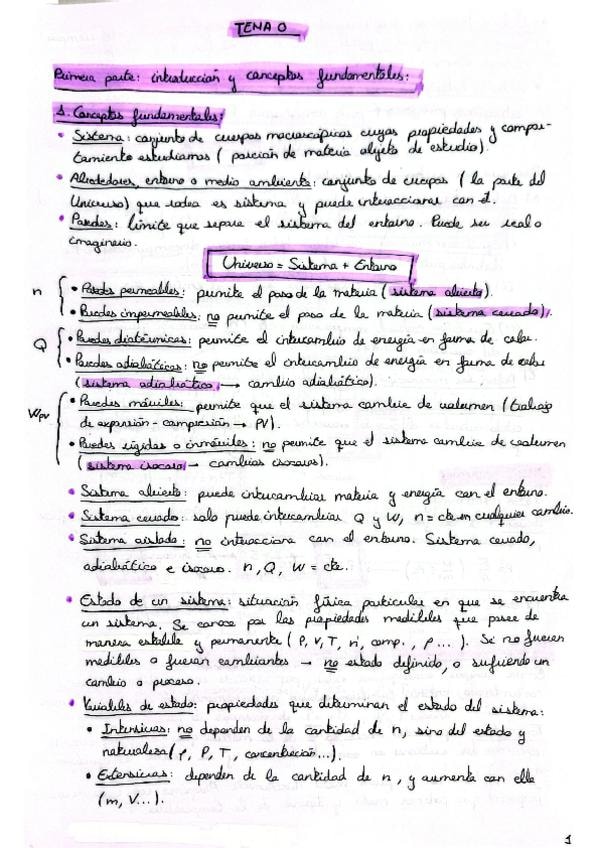 TEMA 0
Primera parte: introducción y conceptos fundamentales:
1. Conceptos fundamentales:
• Sistema: conjunto de cuerpos macroscópicos cuyas propiedades y compor-
tamiento estudiamos (porción de materia objeto de estudio).
• Alrededores, entorno o medio ambiente: conjunto de cuerpos (la parte del
Universo) que rodea es sistema y puede interaccionar con él.
• Paredes: límite que separa el sistema del entorno. Puede ser real o
imaginario.
Universo = Sistema + Entorno
n { • Paredes permeables: permite el paso de la materia (sistema abierto).
• Paredes impermeables: no permite el paso de la materia (sistema cerrado).
Q { • Paredes diatérmicas: permite el intercambio de energía en forma de calor.
• Paredes adiabáticas: no permite el intercambio de energía en forma de calor
(sistema adiabático → cambio adiabático).
Wpv { • Paredes móviles: permite que el sistema cambie de volumen (trabajo
de expansión - compresión → PV).
• Paredes rígidas o inmóviles: no permite que el sistema cambie de volumen
(sistema isocoro → cambios isocoros).
• Sistema abierto: puede intercambiar materia y energía con el entorno.
• Sistema cerrado: solo puede intercambiar Q y W, n = cte en cualquier cambio.
• Sistema aislado: no interacciona con el entorno. Sistema cerrado,
adiabático e isocoro. n, Q, W = cte.
• Estado de un sistema: situación física particular en que se encuentra
un sistema. Se conoce por las propiedades medibles que posee de
manera estable y permanente (P, V, T, n, comp., ρ...). Si no fueran
medibles o fueran cambiantes → no estado definido, o sufriendo un
cambio o proceso.
• Variables de estado: propiedades que determinan el estado del sistema:
• Intensivas: no dependen de la cantidad de n, sino del estado y
naturaleza (ρ, P, T, concentración...).
• Extensivas: dependen de la cantidad de n, y aumenta con ella
(m, V...).
1